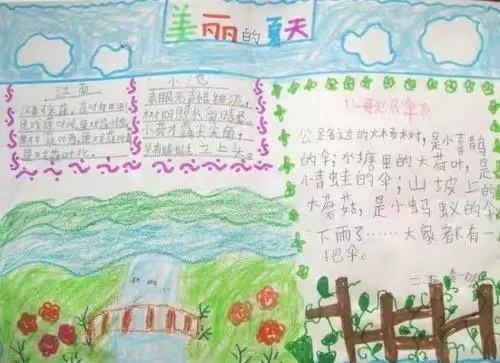 美丽的夏天
江南
江南可采莲,莲叶何田田。
鱼戏莲叶间,鱼戏莲叶东,
鱼戏莲叶西,鱼戏莲叶南,
鱼戏莲叶北。
小池
泉眼无声惜细流,
树阴照水爱晴柔。
小荷才露尖尖角,
早有蜻蜓立上头。
儿歌《伞》
边的大树,是小喜鹊
的伞;水塘里的大荷叶,是
小青蛙的伞;山坡上的
大蘑菇,是小蚂蚁的伞
下雨了……大家都有一
把伞。